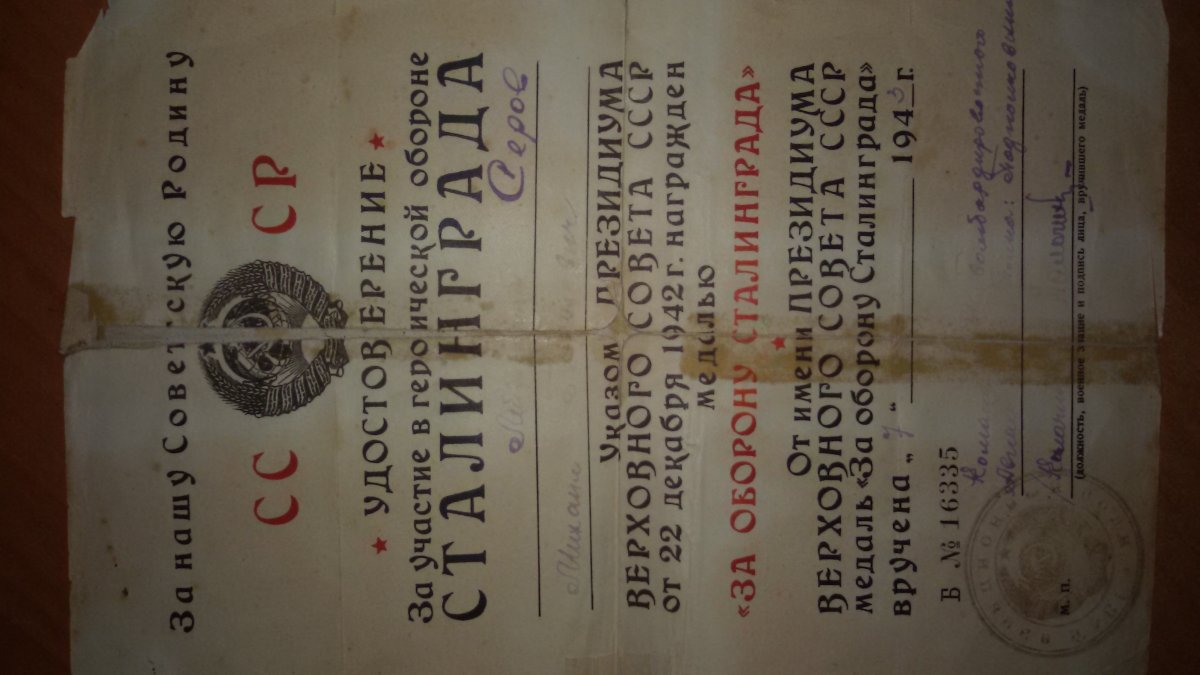 За нашу Советскую Родину
СС СР
УДОСТОВЕРЕНИЕ
За участие в героической обороне
СТАЛИНГРАДА
Серов
Указом ПРЕЗИДИУМА
ВЕРХОВНОГО СОВЕТА СССР
от 22 декабря 1942 г. награжден
медалью
«ЗА ОБОРОНУ СТАЛИНГРАДА»
От имени ПРЕЗИДИУМА
ВЕРХОВНОГО СОВЕТА СССР
медаль «За оборону Сталинграда»
вручена „7“ 1943 г.
Б № 16335
бомбардировочного
(должность, военное звание и подпись лица, вручившего медаль)
М. П.